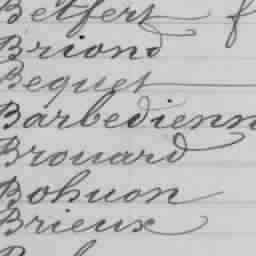 Betfert f
Briond
Bequet
Barbedienn
Brouard
Bohuon
Brieux